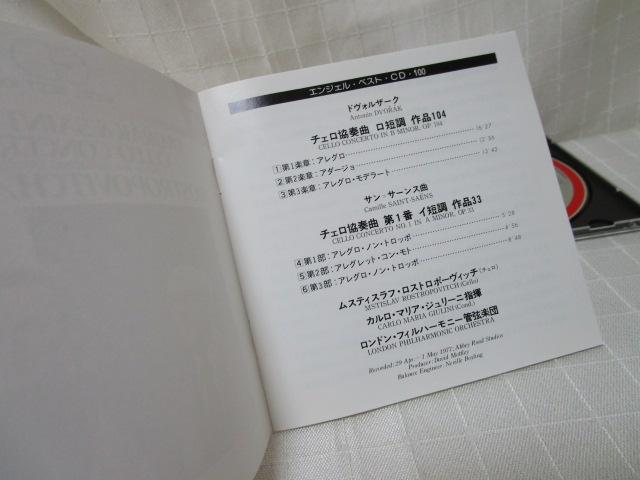 エンジェル・ベスト・CD・100
ドヴォルザーク
Antonín DVOŘÁK
チェロ協奏曲 ロ短調 作品104
CELLO CONCERTO IN B MINOR, OP. 104
1 第1楽章：アレグロ 16'27
2 第2楽章：アダージョ 12'
3 第3楽章：アレグロ・モデラート 13'42
サン＝サーンス曲
Camille SAINT-SAËNS
チェロ協奏曲 第1番 イ短調 作品33
CELLO CONCERTO NO. 1 IN A MINOR, OP. 33
4 第1部：アレグロ・ノン・トロッポ 5'28
5 第2部：アレグレット・コン・モト 4'56
6 第3部：アレグロ・ノン・トロッポ 8'48
ムスティスラフ・ロストロポーヴィッチ(チェロ)
MSTISLAV ROSTROPOVITCH (Cello)
カルロ・マリア・ジュリーニ指揮
CARLO MARIA GIULINI (Cond.)
ロンドン・フィルハーモニー管弦楽団
LONDON PHILHARMONIC ORCHESTRA
Recorded: 29 Apr.—1 May 1977, Abbey Road Studios
Producer: David Mottley
Balance Engineer: Neville Boyling